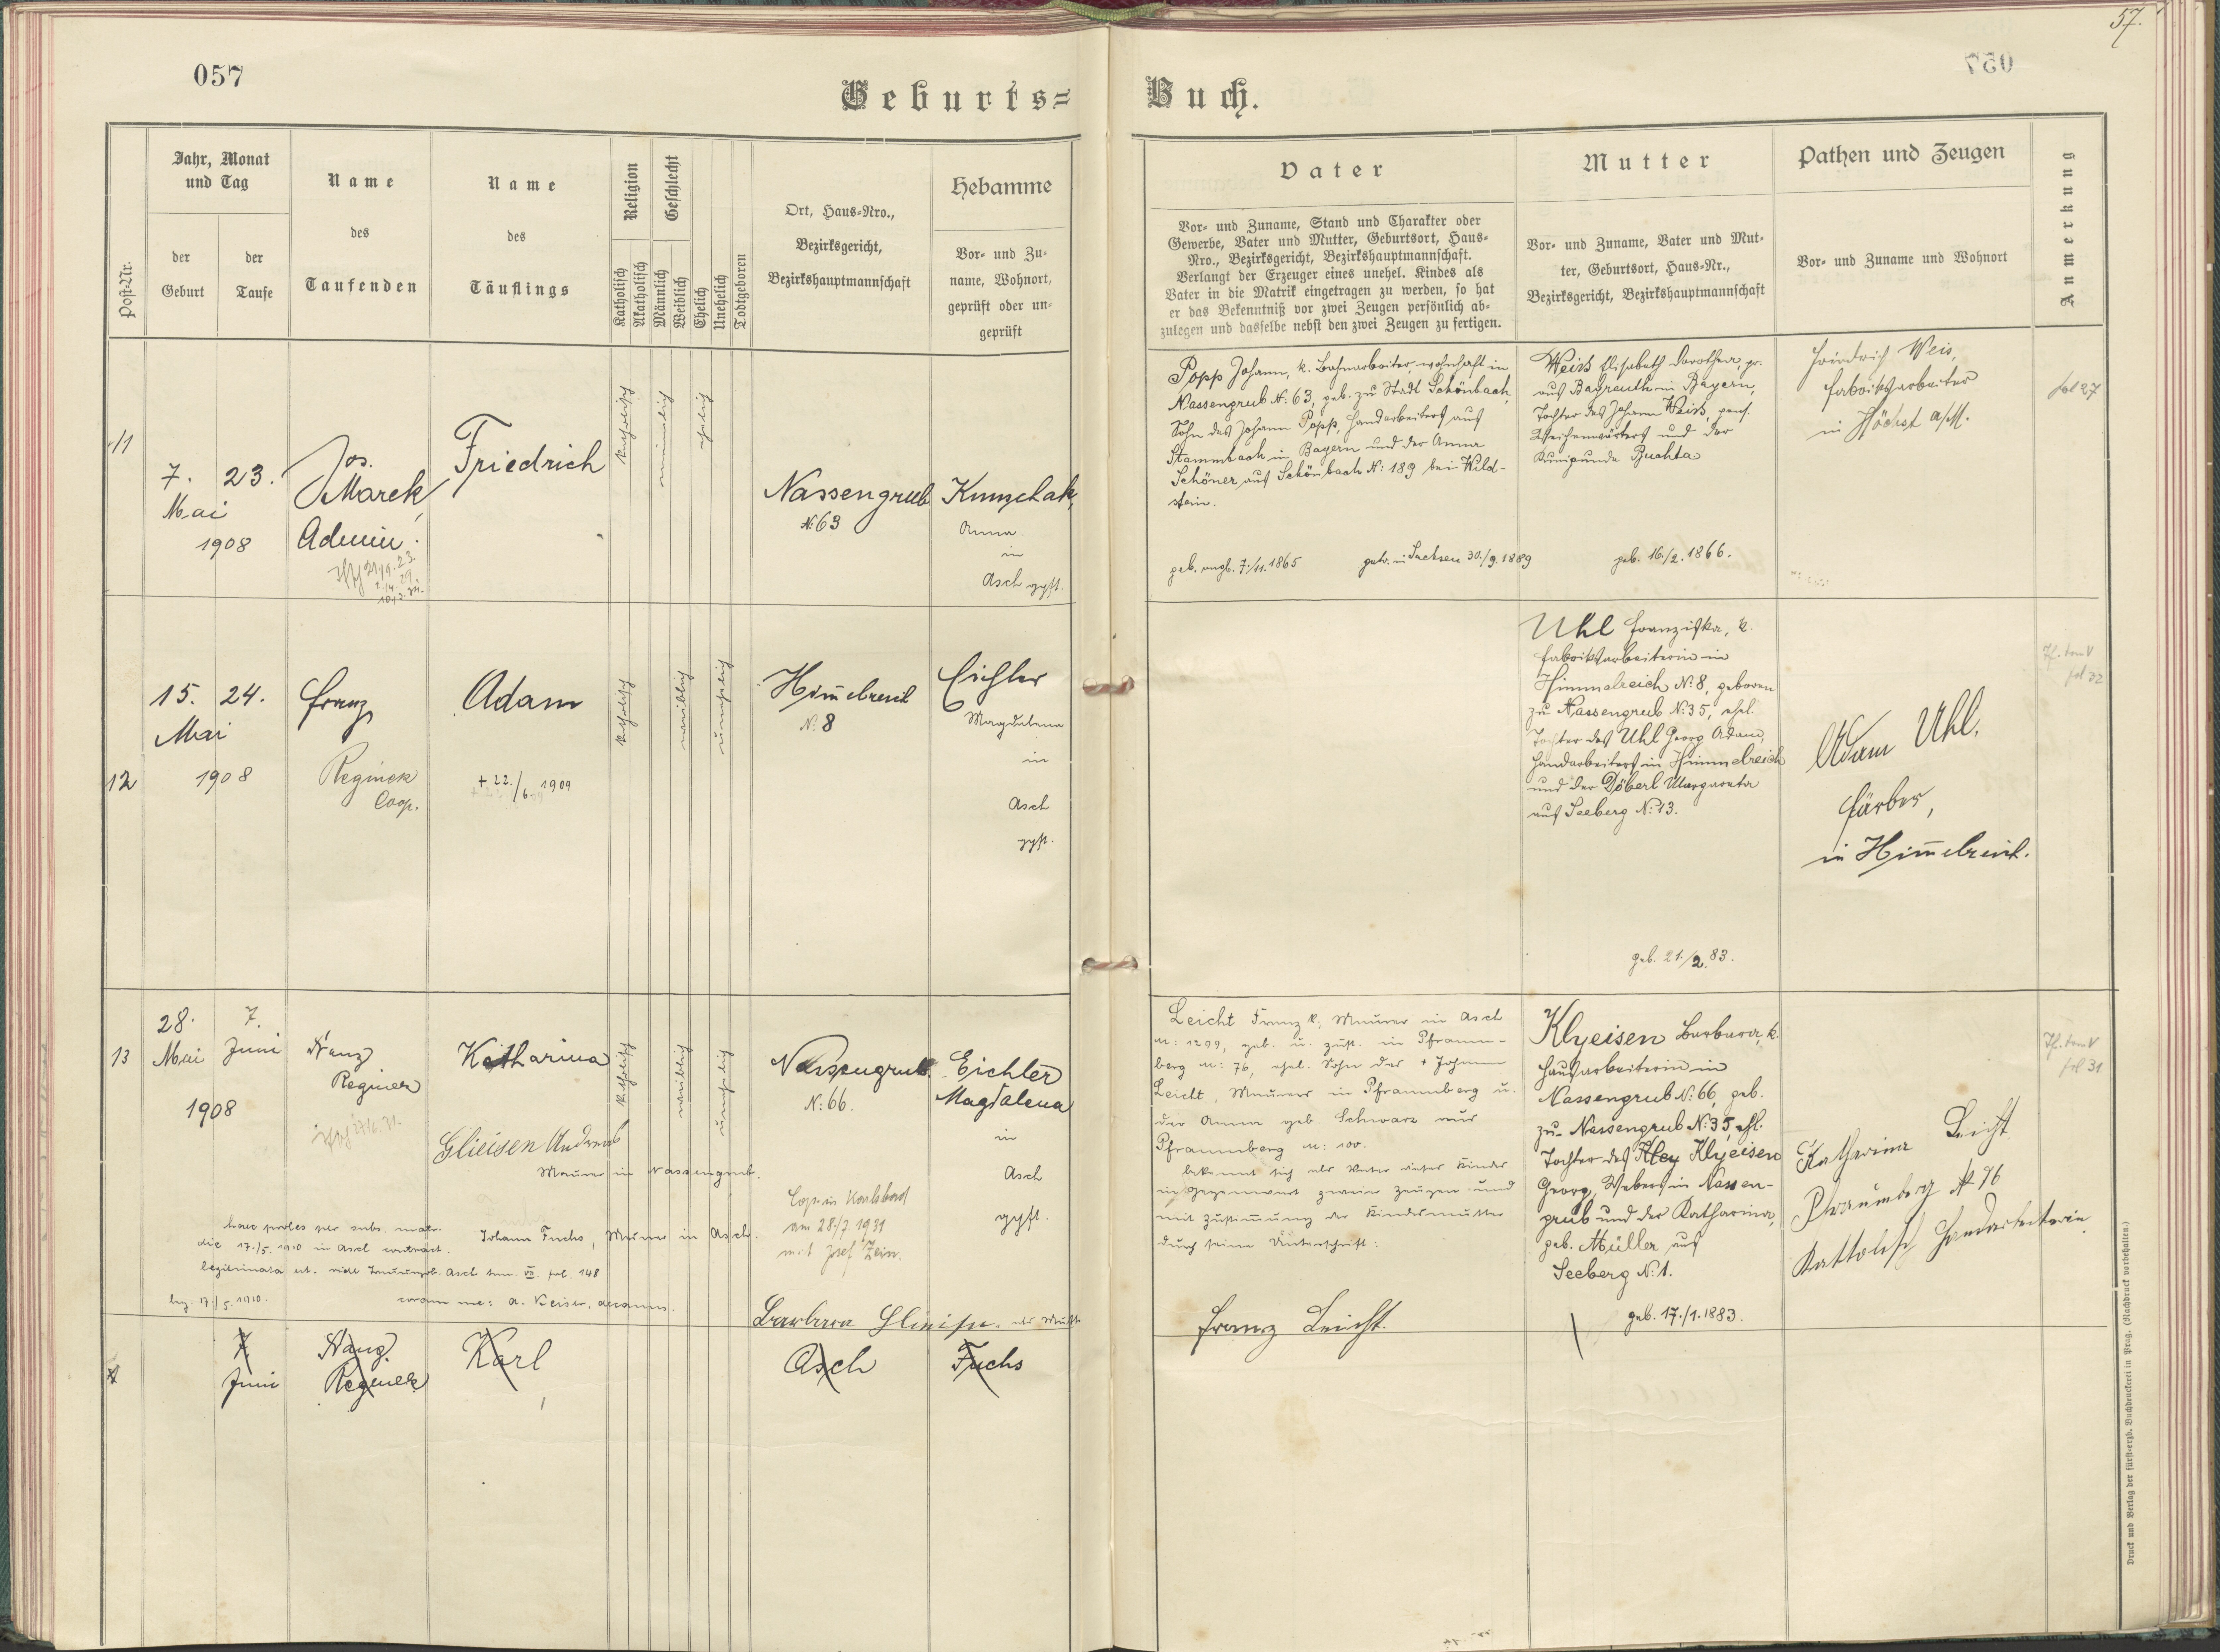 57.
057
Geburts=
Buch.
Post-Nr.
Jahr, Monat
und Tag
der
Geburt
der
Taufe
Name
des
Taufenden
Name
des
Täuflings
Religion
Katholisch
Akatholisch
Geschlecht
Männlich
Weiblich
Ehelich
Unehelich
Todtgeboren
Ort, Haus-Nro.,
Bezirksgericht,
Bezirkshauptmannschaft
Hebamme
Vor- und Zu-
name, Wohnort,
geprüft oder un-
geprüft
Vater
Vor- und Zuname, Stand und Charakter oder
Gewerbe, Vater und Mutter, Geburtsort, Haus-
Nro., Bezirksgericht, Bezirkshauptmannschaft.
Verlangt der Erzeuger eines unehel. Kindes als
Vater in die Matrik eingetragen zu werden, so hat
er das Bekenntniß vor zwei Zeugen persönlich ab-
zulegen und dasselbe nebst den zwei Zeugen zu fertigen.
Mutter
Vor- und Zuname, Vater und Mut-
ter, Geburtsort, Haus-Nr.,
Bezirksgericht, Bezirkshauptmannschaft
Pathen und Zeugen
Vor- und Zuname und Wohnort
Anmerkung
11
7. 23.
Mai
1908
Jos.
Marek,
Admin.
Friedrich
katholisch
männlich
ehelich
Nassengrub
N: 63
Anna
in
Asch gepft.
Popp Johann, k. Bahnarbeiter, wohnhaft in
Nassengrub N: 63, geb. zu Stadt Schönbach,
Sohn des Johann Popp, Handarbeiters aus
Stammbach in Bayern und der Anna
Schöner aus Schönbach N: 189 bei Wild-
stein.
geb. 7./11. 1865
getr. in Sachsen 30./9. 1889
Weiß Elisabeth Dorothea, pr.
aus Bayreuth in Bayern,
Tochter des Johann Weiß, pens.
Weichenwärters und der
Kunigunda Buchta
geb. 16./2. 1866.
Friedrich Weis,
Fabriksarbeiter
in Höchst a/M.
fol 27
12
15. 24.
Mai
1908
Franz
Reginek
Coop.
Adam
+ 22./6 1909
katholisch
weiblich
unehelich
Himelreich
N: 8
Eichler
Magdalena
in
Asch
gepft.
Uhl Franziska, k.
Fabriksarbeiterin in
Himmelreich N: 8, geboren
zu Nassengrub N: 35, ehel.
Tochter des Uhl Georg Adam,
Handarbeiters in Himmelreich
und der Döberl Margareta
aus Seeberg N: 13.
geb. 21./2. 83.
Adam Uhl,
Färber,
in Himelreich.
13
28. 7.
Mai Juni
1908
Franz
Reginek
Katharina
katholisch
weiblich
unehelich
Nassengrub.
N: 66.
Eichler
Magdalena
in
Asch
gepft.
Glieisen Andreas
Maurer in Nassengrub.
Johann Fuchs, Maurer in Asch.
Cop. in Karlsbad
am 28/7 1931
mit Josef Zein.
haec proles per subs. matr.
die 17./5. 1910 in Asch contract.
legitimata est. vide Asch tom. VII. fol. 148
leg. 17./5. 1910.
coram me: a. Keiser, decanus.
Barbara Glieisen als Mutter
Leicht Franz k., Maurer in Asch
N: 1299, geb. u. zust. in Pfraum-
berg N: 76, ehel. Sohn des + Johann
Leicht, Maurers in Pfraumberg u.
der Anna geb. Schwarz aus
Pfraumberg N: 100.
bekennt sich als Vater dieses Kindes
in Gegenwart zweier Zeugen und
mit Zustimmung der Kindesmutter
durch seine Unterschrift:
Franz Leicht.
Klyeisen Barbara, k.
Hausarbeiterin in
Nassengrub N: 66, geb.
zu Nassengrub N: 35, ehl.
Tochter des Kley Klyeisen
Georg, Webers in Nassen-
grub und der Katharina,
geb. Müller aus
Seeberg N: 1.
geb. 17./1. 1883.
Katharina Leicht
Pfraumberg N 76
Katholisch Handarbeiterin
fol 31
7.
Juni
Franz
Reginek
Karl
Asch
Fuchs
Druck und Verlag der fürst-erzb. Buchdruckerei in Prag. (Nachdruck vorbehalten.)